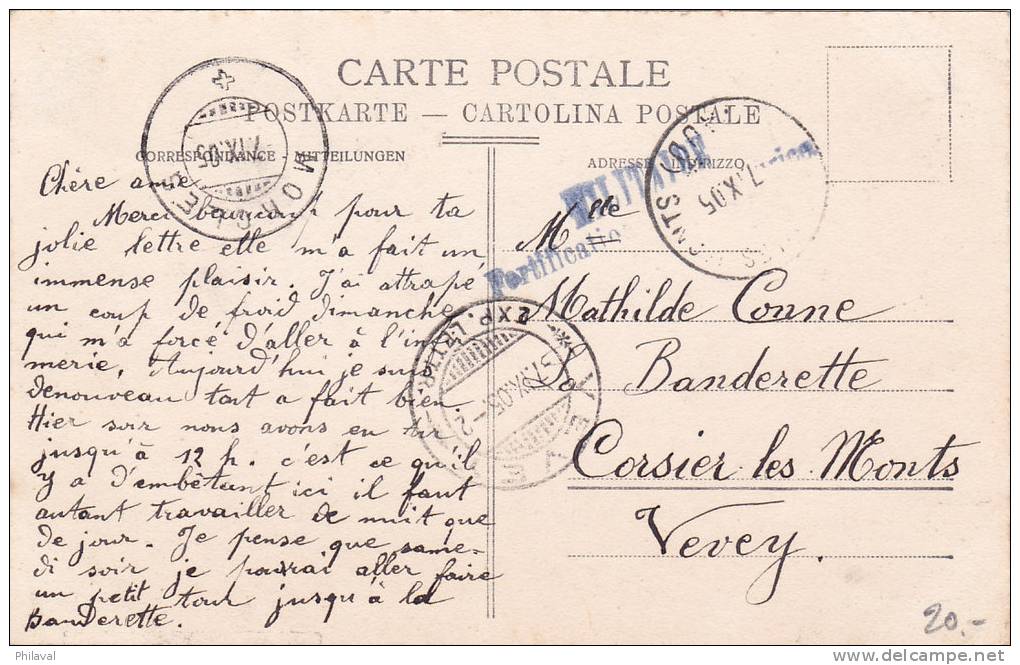 CARTE POSTALE
POSTKARTE — CARTOLINA POSTALE
CORRESPONDANCE - MITTEILUNGEN
ADRESSE - INDIRIZZO
MORCLES
7.IX.05
7.IX.05
MILITAIRE
Fortificatio
EXP. LETTR.
VEVEY
7.IX.05
Chère amie
Merci beaucoup pour ta
jolie lettre elle m'a fait un
immense plaisir. J'ai attrapé
un coup de froid dimanche
qui m'a forcé d'aller à l'infir
merie, Aujourd'hui je suis
denouveau tout a fait bien.
Hier soir nous avons eu tir
jusqu'à 12 h. c'est ce qu'il
y a d'embêtant ici il faut
autant travailler de nuit que
de jour. Je pense que same=
di soir je pourrai aller faire
un petit tour jusqu'à la
Banderette.
Melle
Mathilde Conne
Banderette
Corsier les Monts
Vevey.
20.-
Philaval
delcampe.net